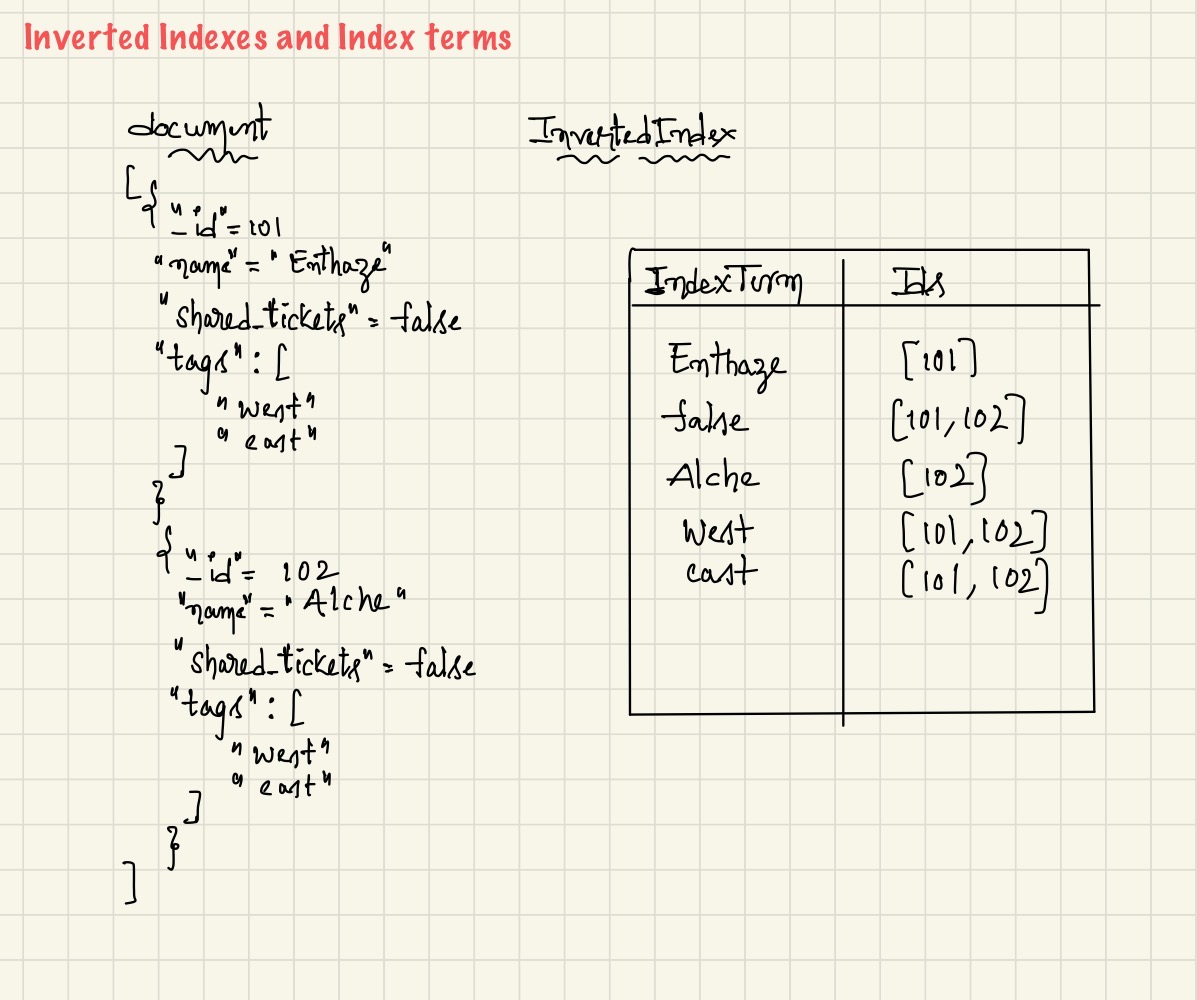 Inverted Indexes and Index terms
document
[{
"_id" = 101
"name" = "Enthaze"
"shared_tickets" = false
"tags" : [
"West"
"east"
]
}
{
"_id" = 102
"name" = "Alche"
"shared_tickets" = false
"tags" : [
"West"
"east"
]
}
]
InvertedIndex
IndexTerm Ids
Enthaze [101]
false [101, 102]
Alche [102]
West [101, 102]
east [101, 102]